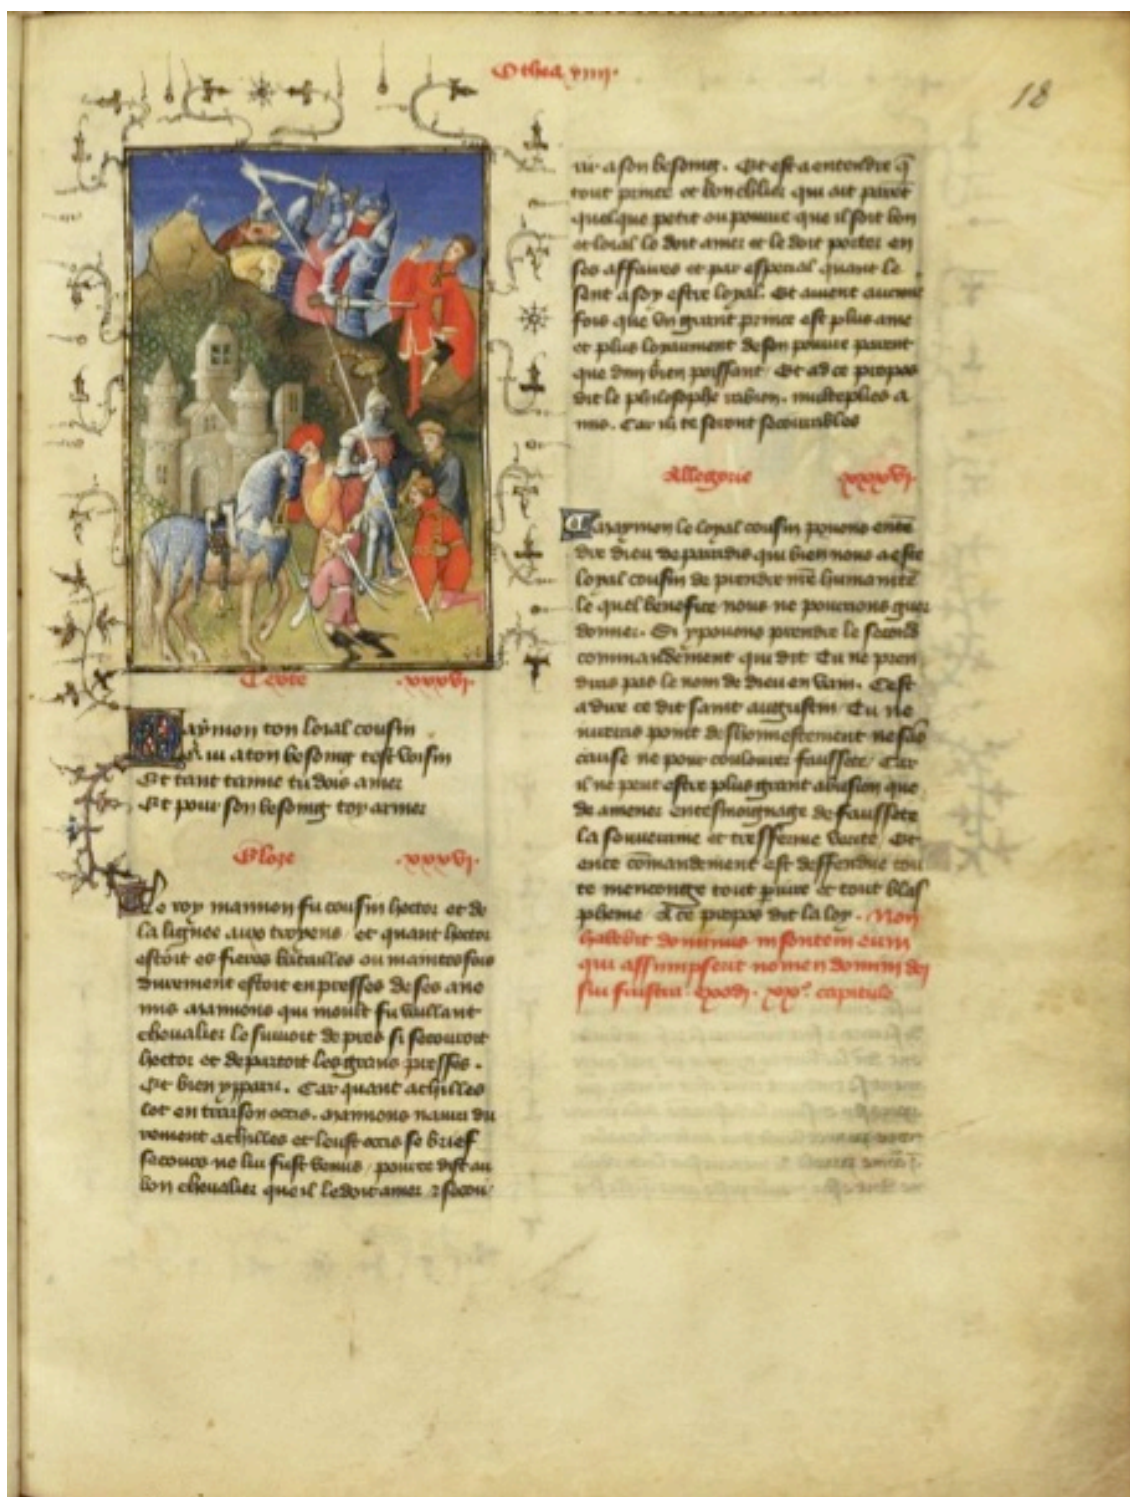 Othea xviii.
18
Texte .xxxvi.
Maymon ton loial cousin
Qui a ton besoing test voisin
Et tant taime tu dois amer
Et pour son besoing toy armer
Glose .xxxvi.
Le roy mannon fu cousin hector et de
la lignee aux troyens / et quant hector
estoit es fieres batailles ou maintes fois
durement estoit en presses de ses ane
mis mannons qui moult fu vaillant
chevalier le suivoit de pres si secouroit
hector et departoit les grans presses .
Et bien y paru . Car quant achilles
lot en traison occis . mannons navra du
rement achilles et leust occis se brief
secours ne lui fust venus / pour ce dist au
bon chevalier que il le doit amer et secou
rir a son besoing . Et est a entendre q̄
tout prince et bon chlier qui ait parēt
quelque petit ou pouure que il soit bon
et loial le doit amer et le doit porter en
ses affaires et par especial quant le
sent a soy estre loyal . Et avient aucune
fois que un grant prince est plus ame
et plus loyaument de son pouure parent
que dun bien poissant / Et ad ce propos
dit le philosophe rabion . multeplies a
mis . Car ilz te seront secourables
Allegorie xxxvi.
Maymon le loyal cousin pouons entē
dre dieu de paradis qui bien nous a este
loyal cousin de prendre nr̄e humanite
le quel benefice nous ne pourrions guer
donner . Si y pouons prendre le second
commandement qui dit Tu ne pren
dras pas le nom de dieu en vain . Cest
a dire ce dit saint augustin / Tu ne
jureras point deshonnestement ne sās
cause ne pour coulourer faussete / Car
il ne peut estre plus grant abusion que
de amener en tesmoignage de faussete
la souueraine et tresferme verite / Et
en ce cōmandement est deffendue tou
te mensonge tout pariure et tout blas
pheme / A ce propos dit la loy . Non
habebit dominus insontem eum
qui assumpserit nomen domini dei
sui frustra . exodi . xx.º capitulo